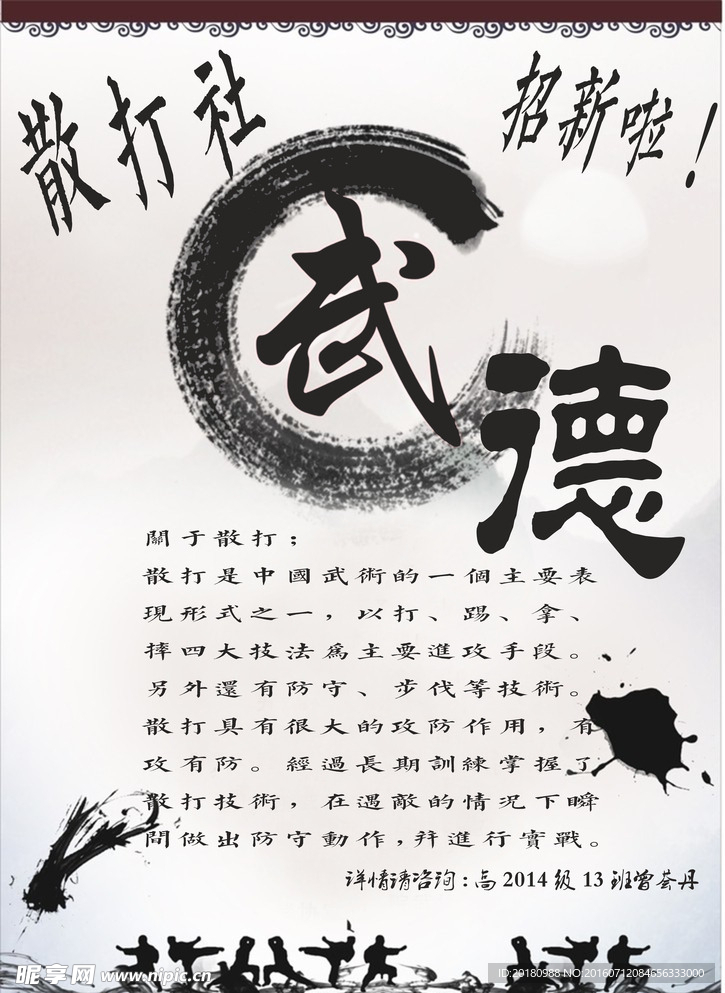 散打社
招新啦！
武
德
關于散打；
散打是中國武術的一個主要表
現形式之一，以打、踢、拿、
摔四大技法爲主要進攻手段。
另外還有防守、步伐等技術。
散打具有很大的攻防作用，有
攻有防。經過長期訓練掌握了
散打技術，在遇敵的情況下瞬
間做出防守動作，并進行實戰。
详情请咨询：高 2014 级 13 班曾荟丹
昵享网 www.nipic.cn
ID:20180988 NO:20160712084656333000